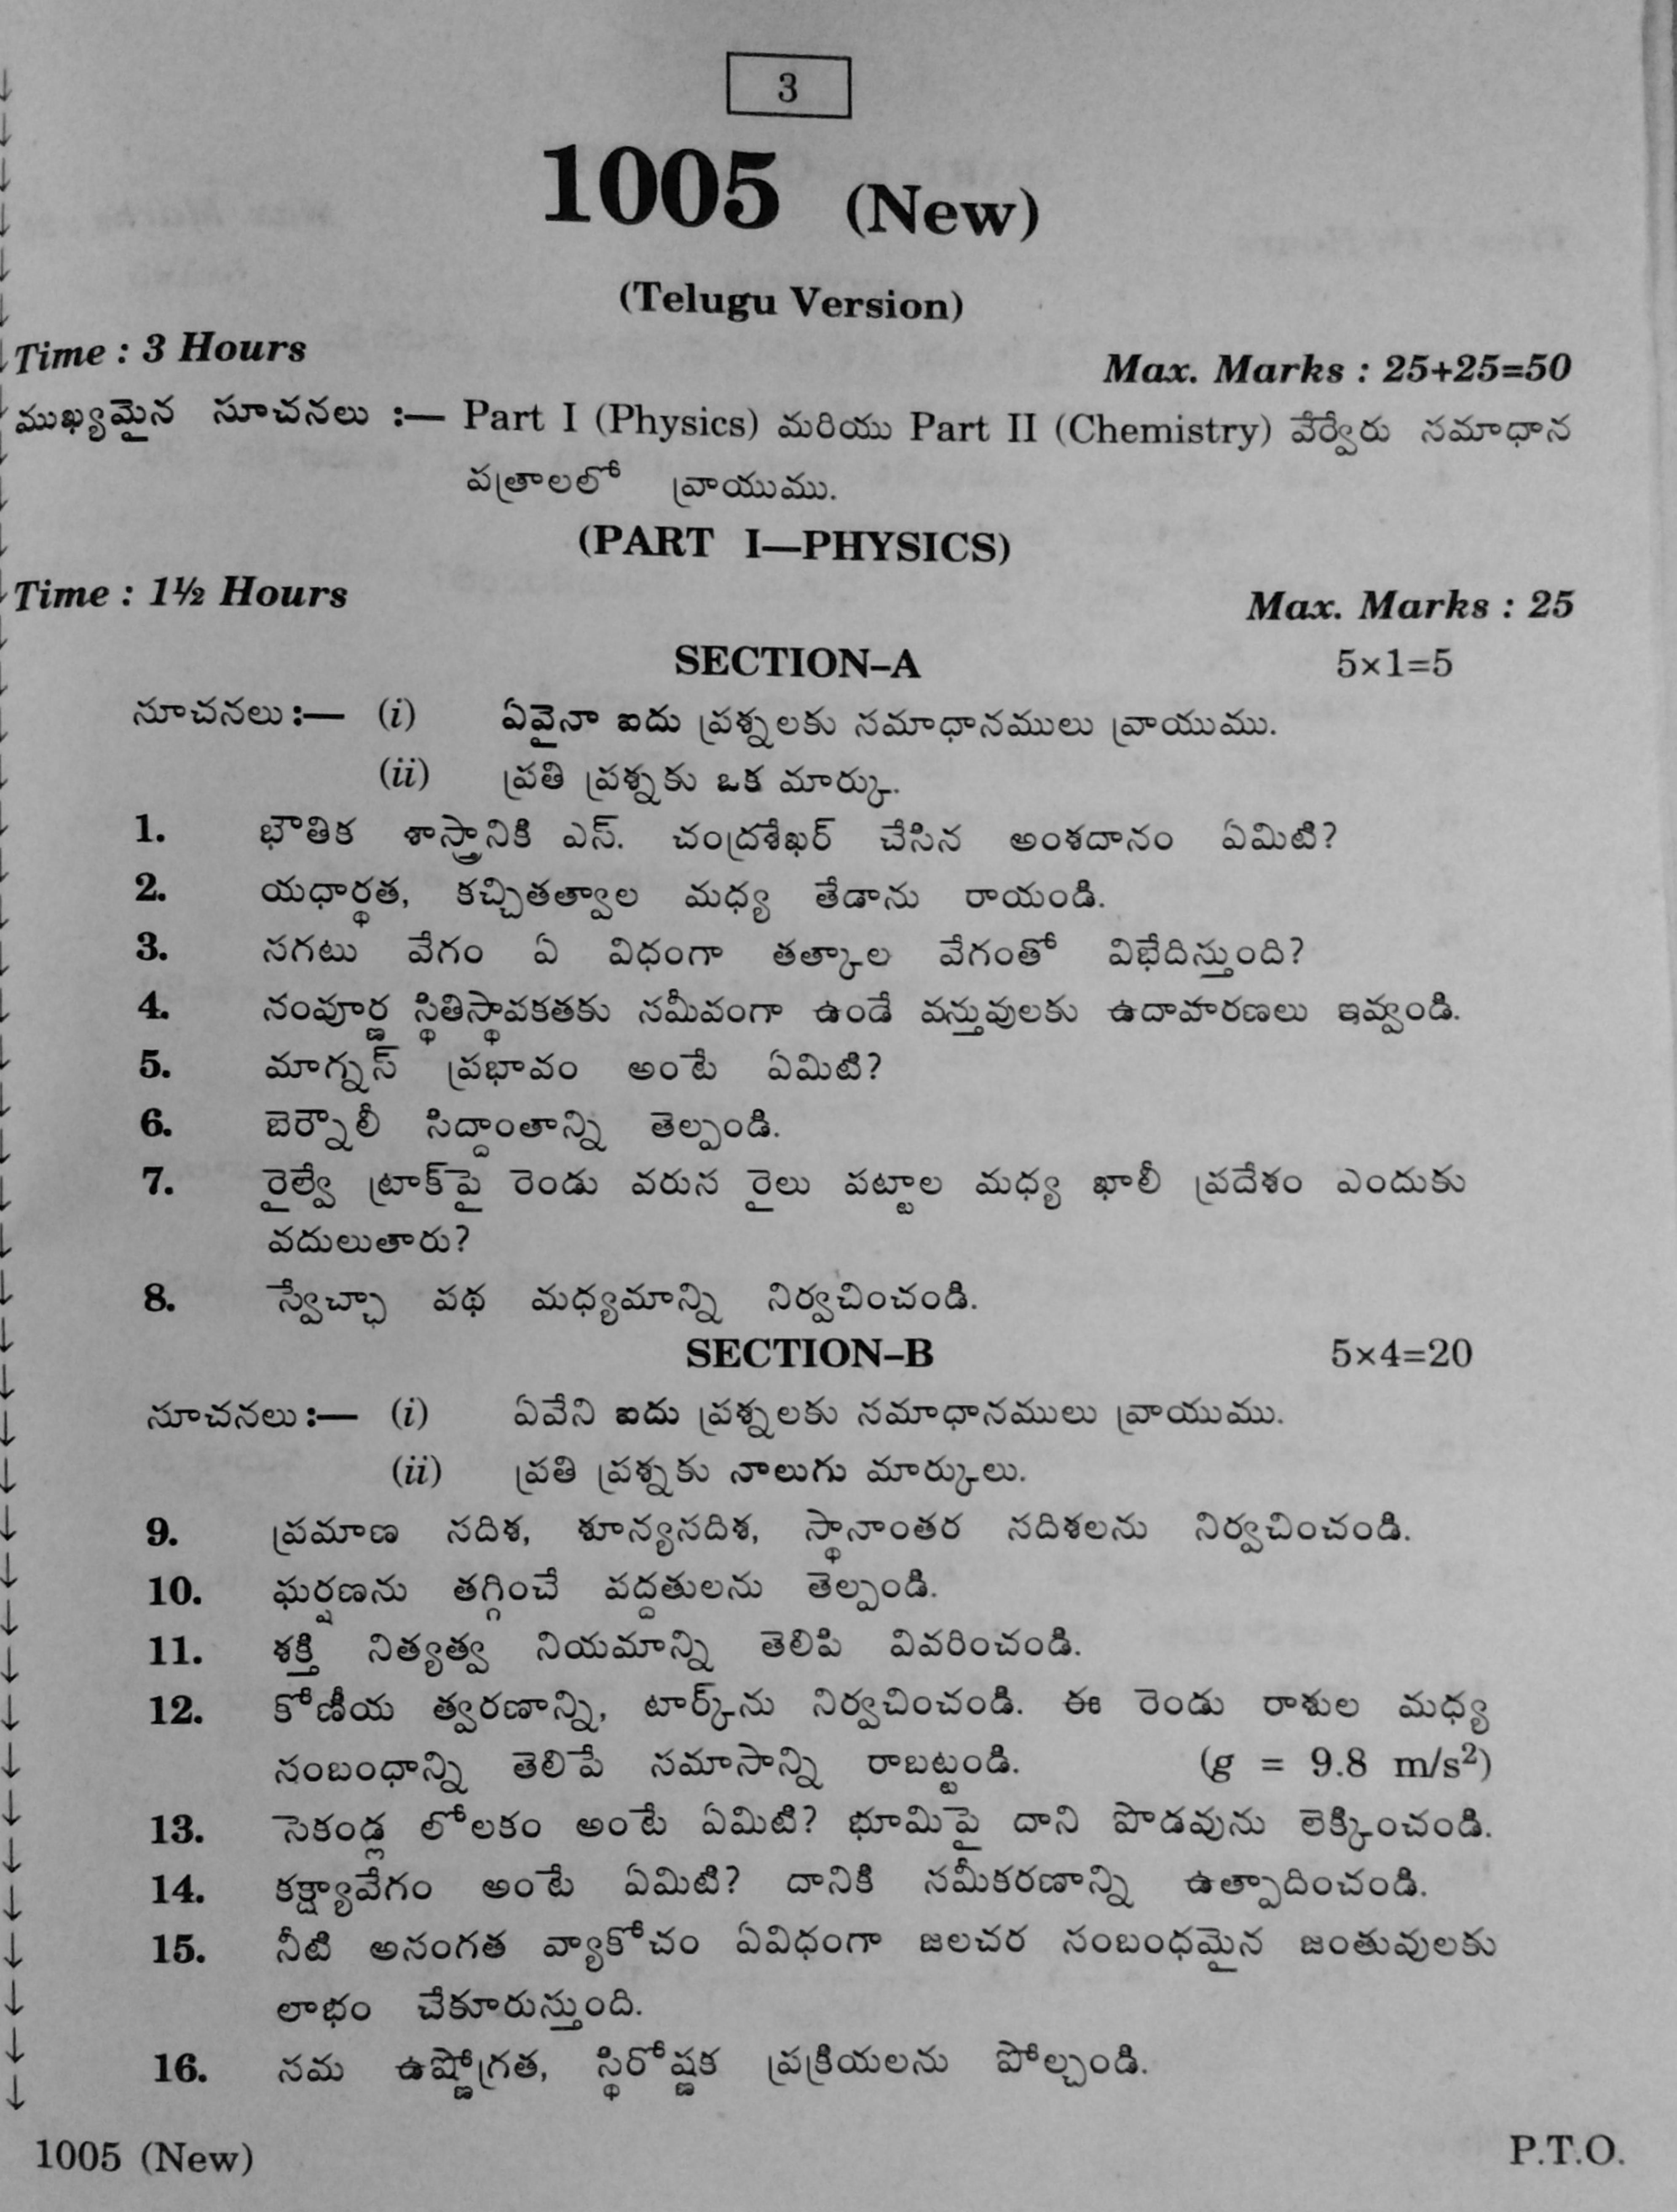 3
1005 (New)
(Telugu Version)
Time : 3 Hours
Max. Marks : 25+25=50
ముఖ్యమైన సూచనలు :— Part I (Physics) మరియు Part II (Chemistry) వేర్వేరు సమాధాన
పత్రాలలో వ్రాయుము.
(PART I—PHYSICS)
Time : 1½ Hours
Max. Marks : 25
SECTION–A 5×1=5
సూచనలు :— (i) ఏవైనా ఐదు ప్రశ్నలకు సమాధానములు వ్రాయుము.
(ii) ప్రతి ప్రశ్నకు ఒక మార్కు.
1. భౌతిక శాస్త్రానికి ఎస్. చంద్రశేఖర్ చేసిన అంశదానం ఏమిటి?
2. యధార్థత, కచ్చితత్వాల మధ్య తేడాను రాయండి.
3. సగటు వేగం ఏ విధంగా తత్కాల వేగంతో విభేదిస్తుంది?
4. సంపూర్ణ స్థితిస్థాపకతకు సమీపంగా ఉండే వస్తువులకు ఉదాహరణలు ఇవ్వండి.
5. మాగ్నస్ ప్రభావం అంటే ఏమిటి?
6. బెర్నౌలీ సిద్దాంతాన్ని తెల్పండి.
7. రైల్వే ట్రాక్‌పై రెండు వరుస రైలు పట్టాల మధ్య ఖాలీ ప్రదేశం ఎందుకు
వదులుతారు?
8. స్వేచ్ఛా పథ మధ్యమాన్ని నిర్వచించండి.
SECTION–B 5×4=20
సూచనలు :— (i) ఏవేని ఐదు ప్రశ్నలకు సమాధానములు వ్రాయుము.
(ii) ప్రతి ప్రశ్నకు నాలుగు మార్కులు.
9. ప్రమాణ సదిశ, శూన్యసదిశ, స్థానాంతర సదిశలను నిర్వచించండి.
10. ఘర్షణను తగ్గించే పద్దతులను తెల్పండి.
11. శక్తి నిత్యత్వ నియమాన్ని తెలిపి వివరించండి.
12. కోణీయ త్వరణాన్ని, టార్క్‌ను నిర్వచించండి. ఈ రెండు రాశుల మధ్య
సంబంధాన్ని తెలిపే సమాసాన్ని రాబట్టండి. (g = 9.8 m/s²)
13. సెకండ్ల లోలకం అంటే ఏమిటి? భూమిపై దాని పొడవును లెక్కించండి.
14. కక్ష్యావేగం అంటే ఏమిటి? దానికి సమీకరణాన్ని ఉత్పాదించండి.
15. నీటి అసంగత వ్యాకోచం ఏవిధంగా జలచర సంబంధమైన జంతువులకు
లాభం చేకూరుస్తుంది.
16. సమ ఉష్ణోగ్రత, స్థిరోష్ణక ప్రక్రియలను పోల్చండి.
1005 (New)
P.T.O.